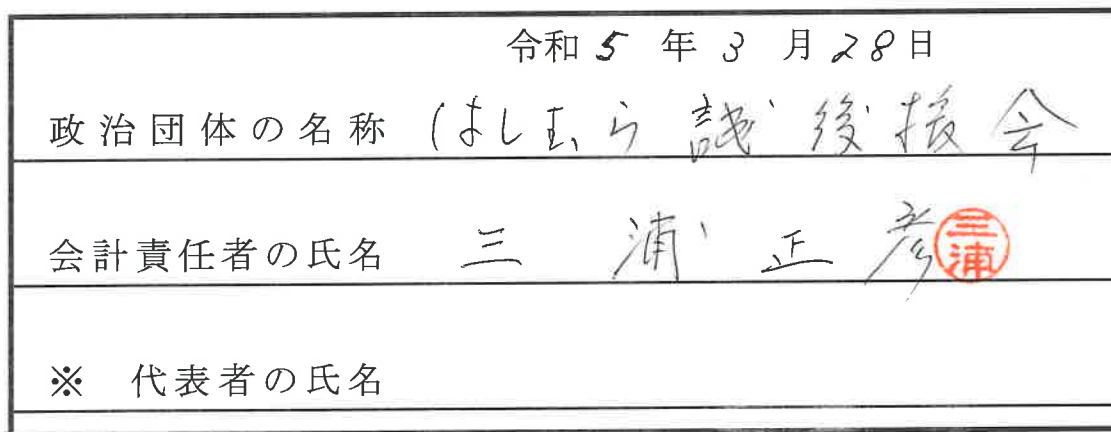 令和 5 年 3 月 28 日
政治団体の名称 はしむら誠後援会
会計責任者の氏名 三浦正彦 三浦
※ 代表者の氏名